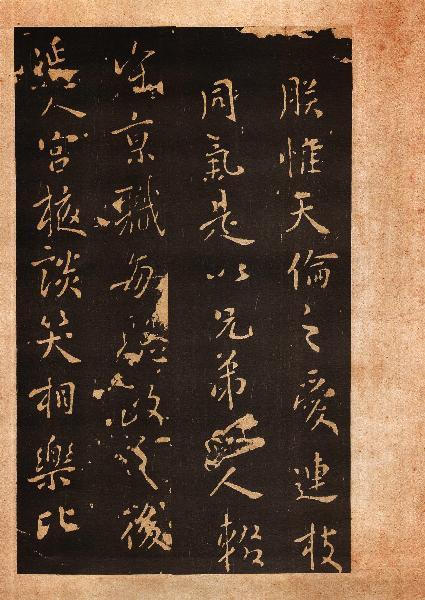 朕惟天倫之愛連枝
同氣是以兄弟人輟
京職每政之後
延入宮掖談笑相樂比